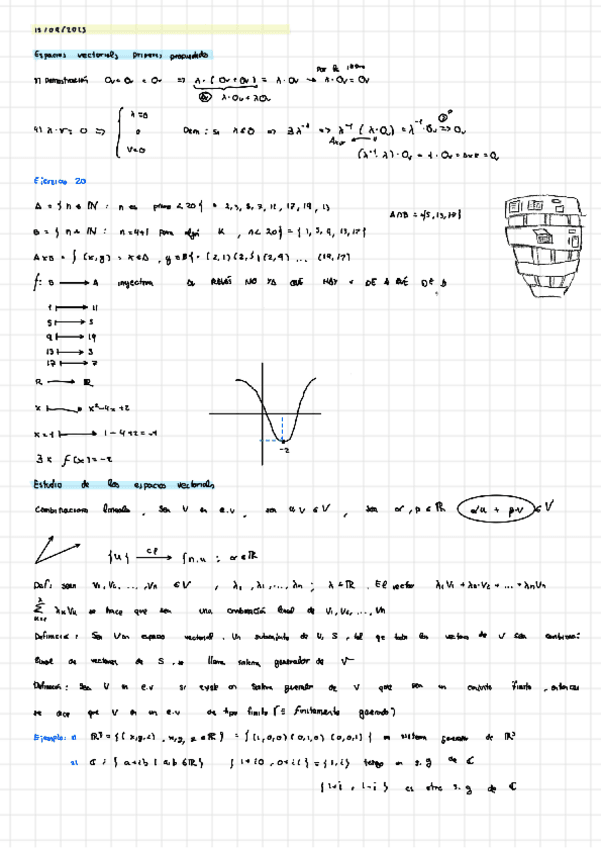 15/09/2023
Espacios vectoriales primeras propiedades
3) Demostración 0v + 0v = 0v => λ·(0v + 0v) = λ·0v → λ·0v = 0v
λ·0v + λ0v
4) λ·v = 0 => { λ=0
o
v=0
Dem: Si λ≠0 => ∃λ⁻¹ => λ⁻¹(λ·0v) = λ⁻¹·0v => 0v
(λ⁻¹·λ)·0v = 1·0v = 0v
Ejercicio 20
A = { n ∈ IN : n es primo < 20 } = 2, 3, 5, 7, 11, 17, 19, 13
A∩B = {5, 13, 17}
B = { n ∈ IN : n = 4k+1 para algún K, n < 20 } = { 1, 5, 9, 13, 17 }
AxB = { (x,y) : x∈A, y∈B } = (2,1)(2,5)(2,9) ... (19,17)
f: B → A inyectiva AL REVÉS NO YA QUE HAY + DE A QUE DE B
1 → 11
5 → 5
9 → 19
13 → 3
17 → 7
R → R
x → x²-4x+2
x=1 → 1-4+2=-1
-2
∃x f(x)=-2
Estudio de los espacios vectoriales
Combinaciones lineales, sea V un e.v, sean u,v ∈ V, sean α, β ∈ IR αu + βv ∈ V
Def: sean v1, v2, ..., vn ∈ V, λ1, λ2, ..., λn ; λ ∈ IR. El vector λ1v1 + λ2v2 + ... + λnvn
se dice que son una combinación lineal de v1, v2, ..., vn
Definición: Sea V un espacio vectorial. Un subconjunto de V, S, tal que todos los vectores de V son combinación
lineal de vectores de S, se llama sistema generador de V
Definición: Sea V un e.v si existe un sistema generador de V que sea un conjunto finito, entonces
se dice que V es un e.v de tipo finito (= finitamente generado)
Ejemplo: 1) IR³ = {(x,y,z), x,y,z ∈ IR} = {(1,0,0)(0,1,0)(0,0,1)} es sistema generador de IR³
2) C = { a+ib | a,b ∈ IR } {1+i0, 0+i} = {1,i} tengo un s.g de C
{1+i, 1-i} es otro s.g de C